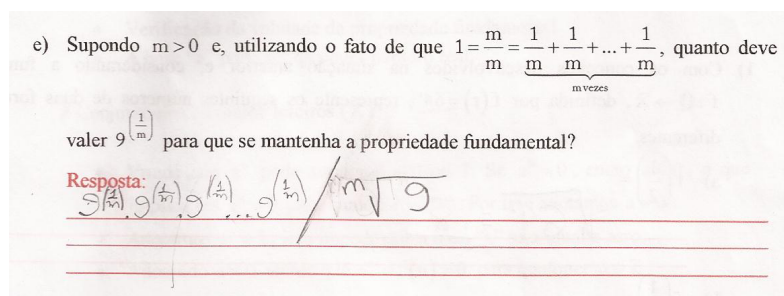 e) Supondo m > 0 e, utilizando o fato de que 1 = m/m = 1/m + 1/m + ... + 1/m, quanto deve
m vezes
valer 9^(1/m) para que se mantenha a propriedade fundamental?
Resposta:
9^(1/m) . 9^(1/m) . 9^(1/m) ... 9^(1/m) / ᵐ√9